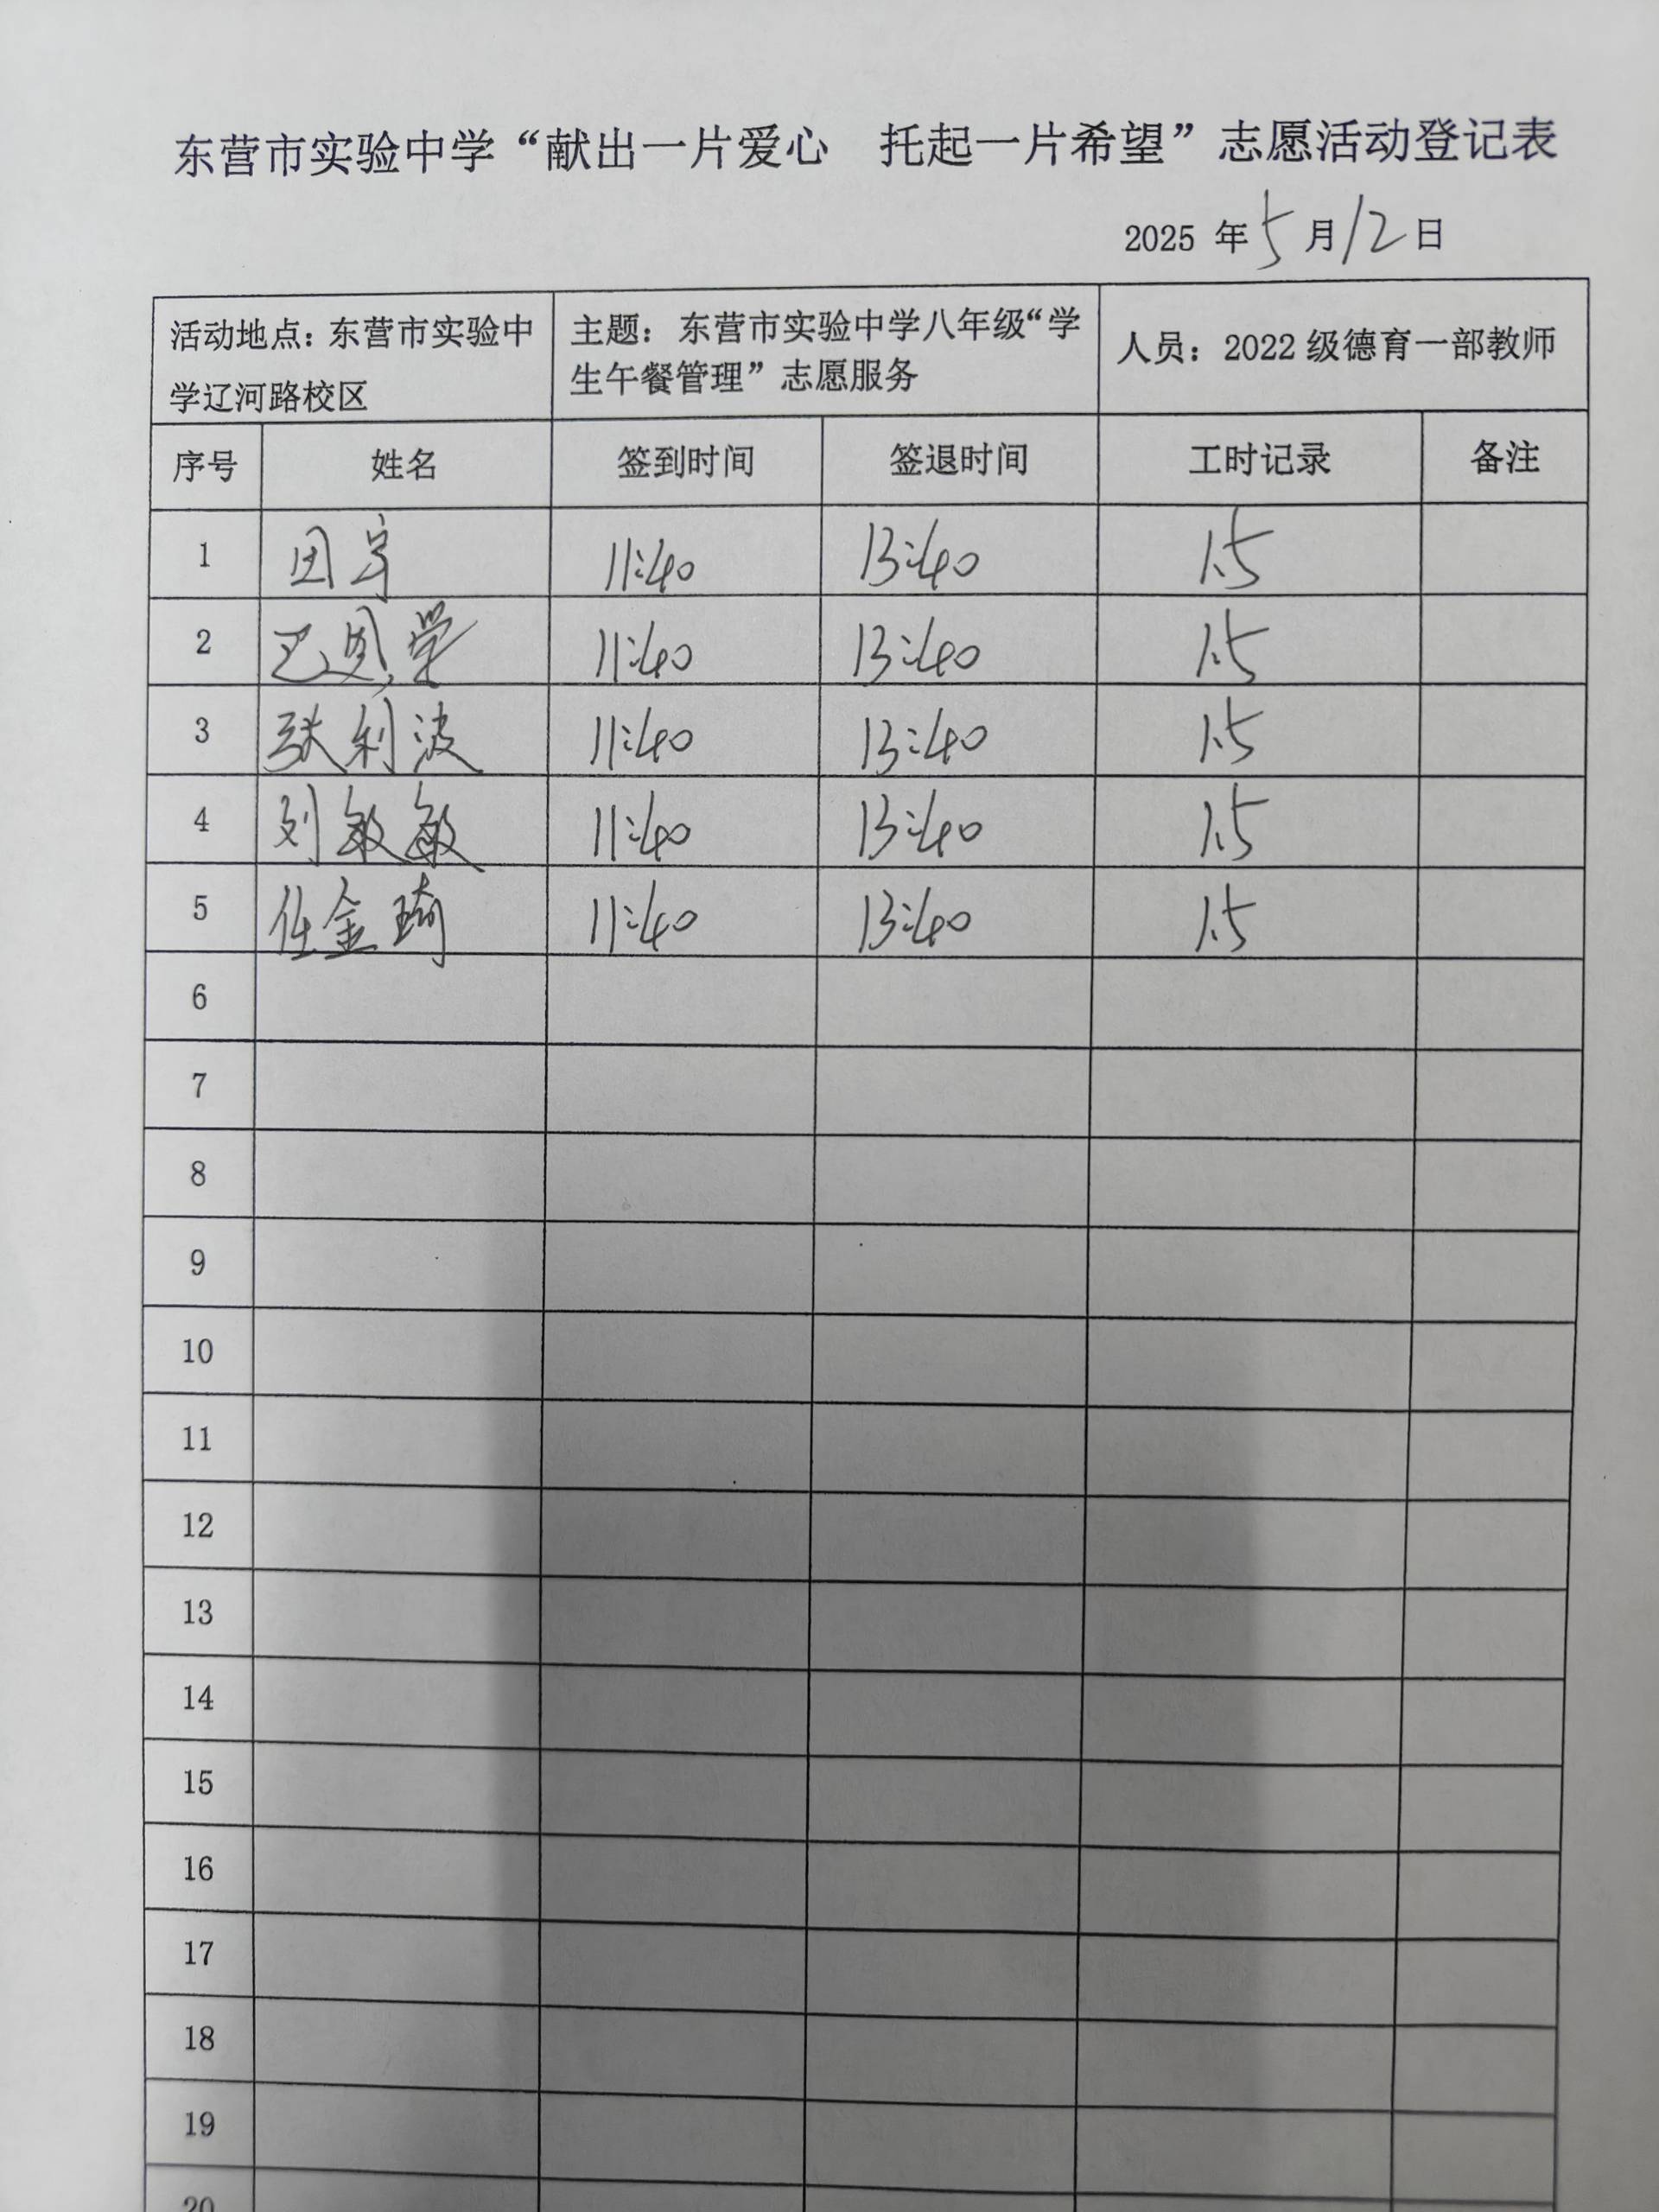 东营市实验中学“献出一片爱心 托起一片希望”志愿活动登记表
2025 年 5 月 12 日
活动地点：东营市实验中学辽河路校区 主题：东营市实验中学八年级“学生午餐管理”志愿服务 人员：2022 级德育一部教师
序号 姓名 签到时间 签退时间 工时记录 备注
1 11:40 13:40 1.5
2 11:40 13:40 1.5
3 张利波 11:40 13:40 1.5
4 刘敏敏 11:40 13:40 1.5
5 任金琦 11:40 13:40 1.5
6
7
8
9
10
11
12
13
14
15
16
17
18
19
20